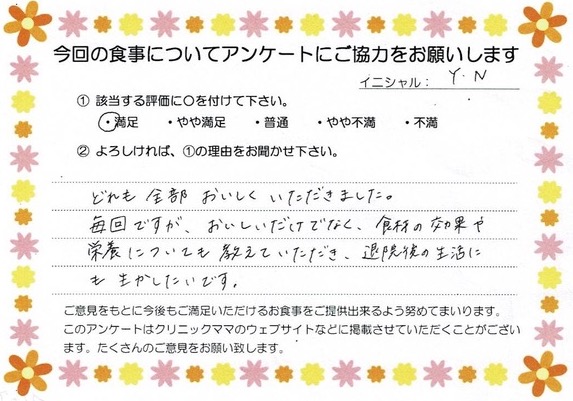 今回の食事についてアンケートにご協力をお願いします
イニシャル： Y.N
① 該当する評価に○を付けて下さい。
・満足 ・やや満足 ・普通 ・やや不満 ・不満
② よろしければ、①の理由をお聞かせ下さい。
どれも全部おいしくいただきました。
毎回ですが、おいしいだけでなく、食材の効果や
栄養についても教えていただき、退院後の生活に
も生かしたいです。
ご意見をもとに今後もご満足いただけるお食事をご提供出来るよう努めてまいります。
このアンケートはクリニックママのウェブサイトなどに掲載させていただくことがござい
ます。たくさんのご意見をお願い致します。